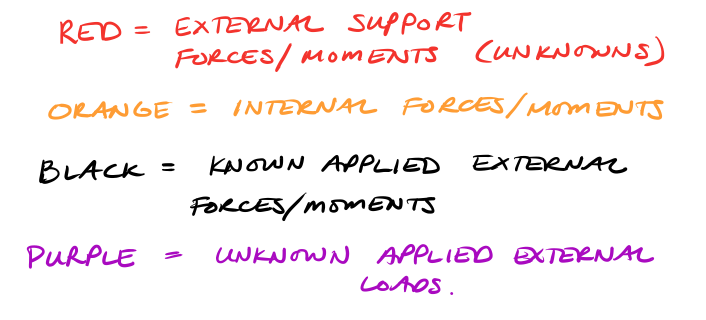 RED = EXTERNAL SUPPORT
FORCES/MOMENTS (UNKNOWNS)
ORANGE = INTERNAL FORCES/MOMENTS
BLACK = KNOWN APPLIED EXTERNAL
FORCES/MOMENTS
PURPLE = UNKNOWN APPLIED EXTERNAL
LOADS.